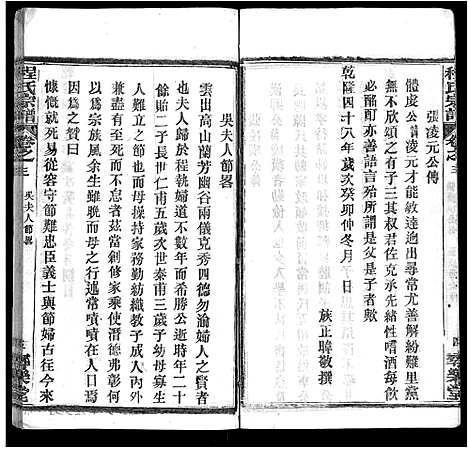 程氏宗譜 卷之三
張凌元公傳
體虔公凌元才能敏達逈出尋常尤善解紛難里黨
無不欣頌之有子三其權君佐克承先緒性嗜酒每飲
必酩酊亦善語言殆所謂是父是子者歟
乾隆四十八年歲次癸卯仲冬月 子日
族正暐敬撰
吳夫人節畧
雲出高山蘭芳幽谷兩儀克秀四德勿渝婦人之賢者
也夫人歸於程執婦道不數年而希勝公逝時年二十
餘貽二子長世仁甫五歲次世泰甫三歲子幼母寡生
人難立之節也而母操持家務勤紡織教子成人內外
無間歷艱死而不忘者茲當創修家乘使潛德弗彰何
以爲宗族風余生雖晚而母之行述常嘖嘖在人口
因爲之贊曰
慷慨就死易從容守節難忠臣義士與節婦古往今來
程氏宗譜 卷之三
吳夫人節畧